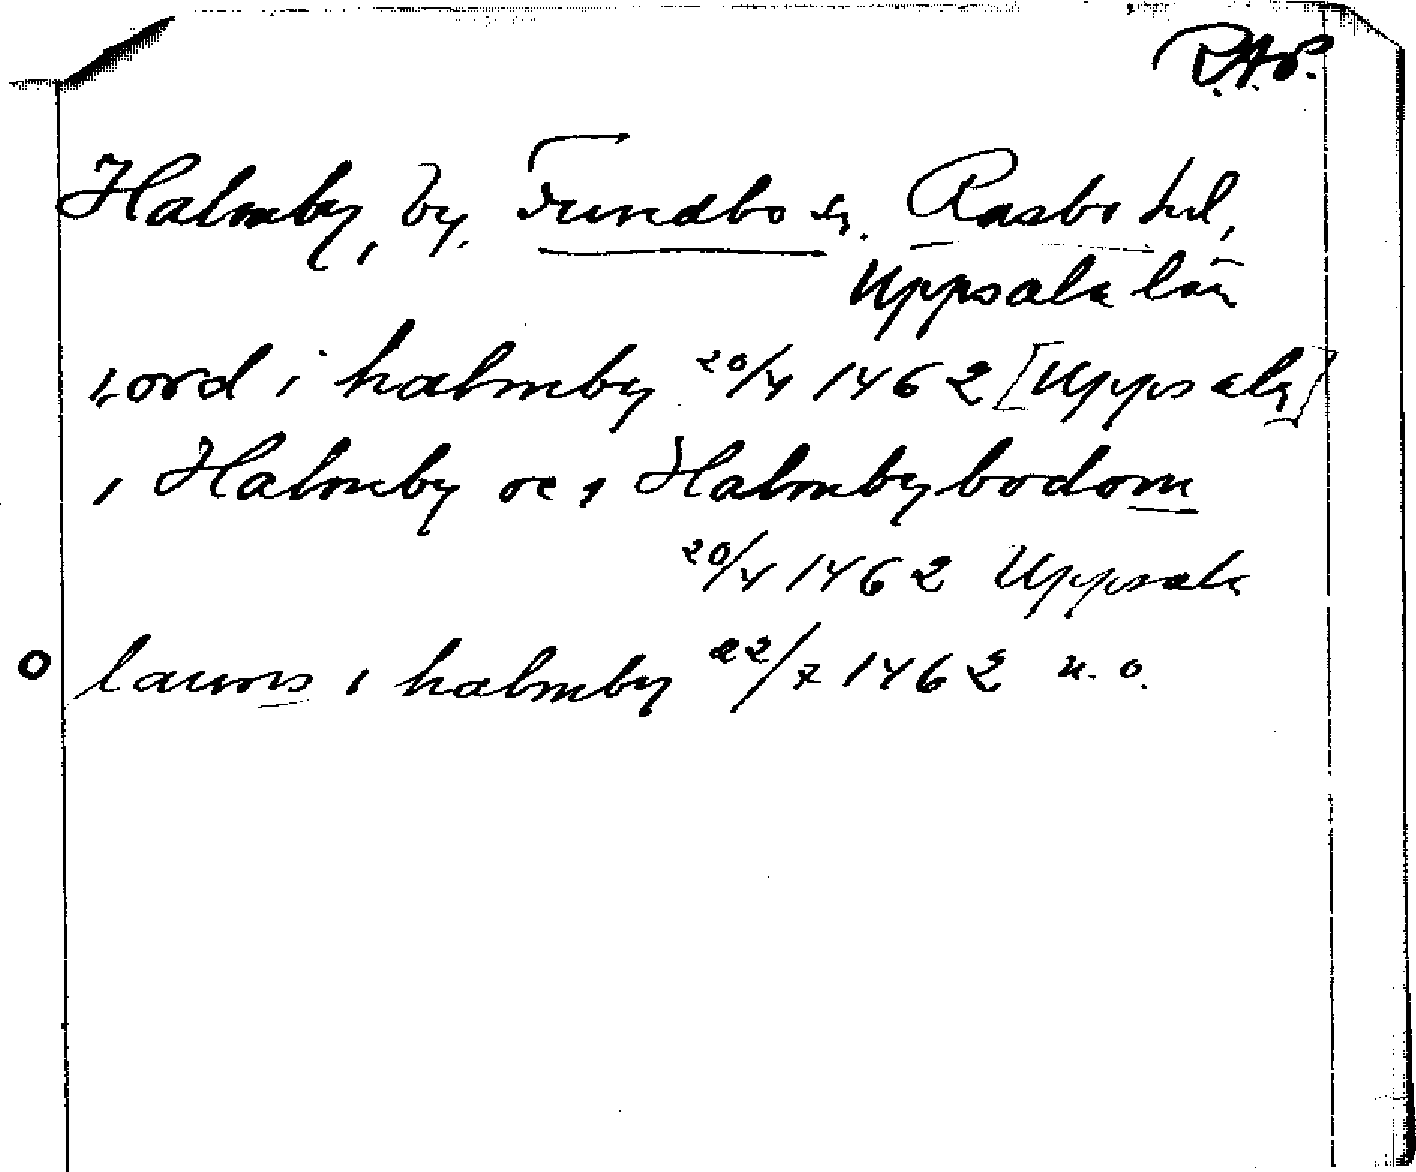 R.A.P.
Halmby, by, Funbo sn. Rasbo hd,
Uppsala län
i, ord i halmby 20/4 1462 [Uppsala]
i Halmby oc i Halmbybodom
20/4 1462 Uppsala
laurens i halmby 22/7 1462 u. o.